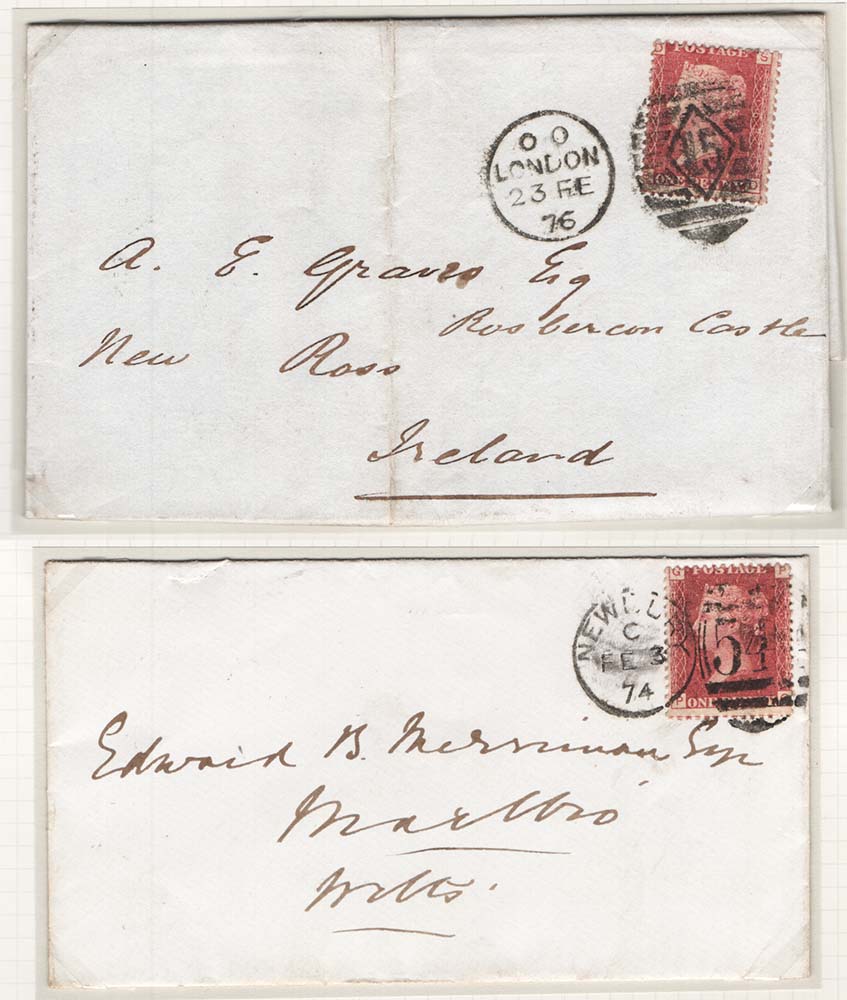 D POSTAGE S
O O
LONDON
23 FE
76
15
ONE PENNY D
A. E. Graves Esq
Rosbercon Castle
New Ross
Ireland
G POSTAGE P
C
FE 3
74
54
P ONE G
Edward B. Merriman Esqr
Marlbro'
Wilts.